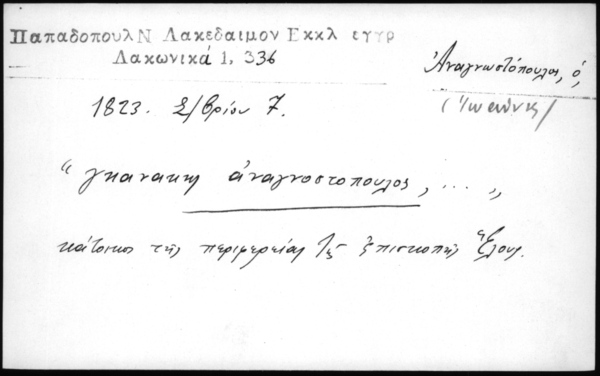 Παπαδοπουλ Ν Λακεδαιμον Εκκλ εγγρ
Λακωνικά 1, 336
Ἀναγνωστόπουλος, ὁ,
(Ἰωάννης)
1823. Σ/βρίου 7.
“γιανακης ἀναγνοστοπουλος, ... „
κάτοικος τῆς περιφερείας τῆς ἐπισκοπῆς Ἕλους.